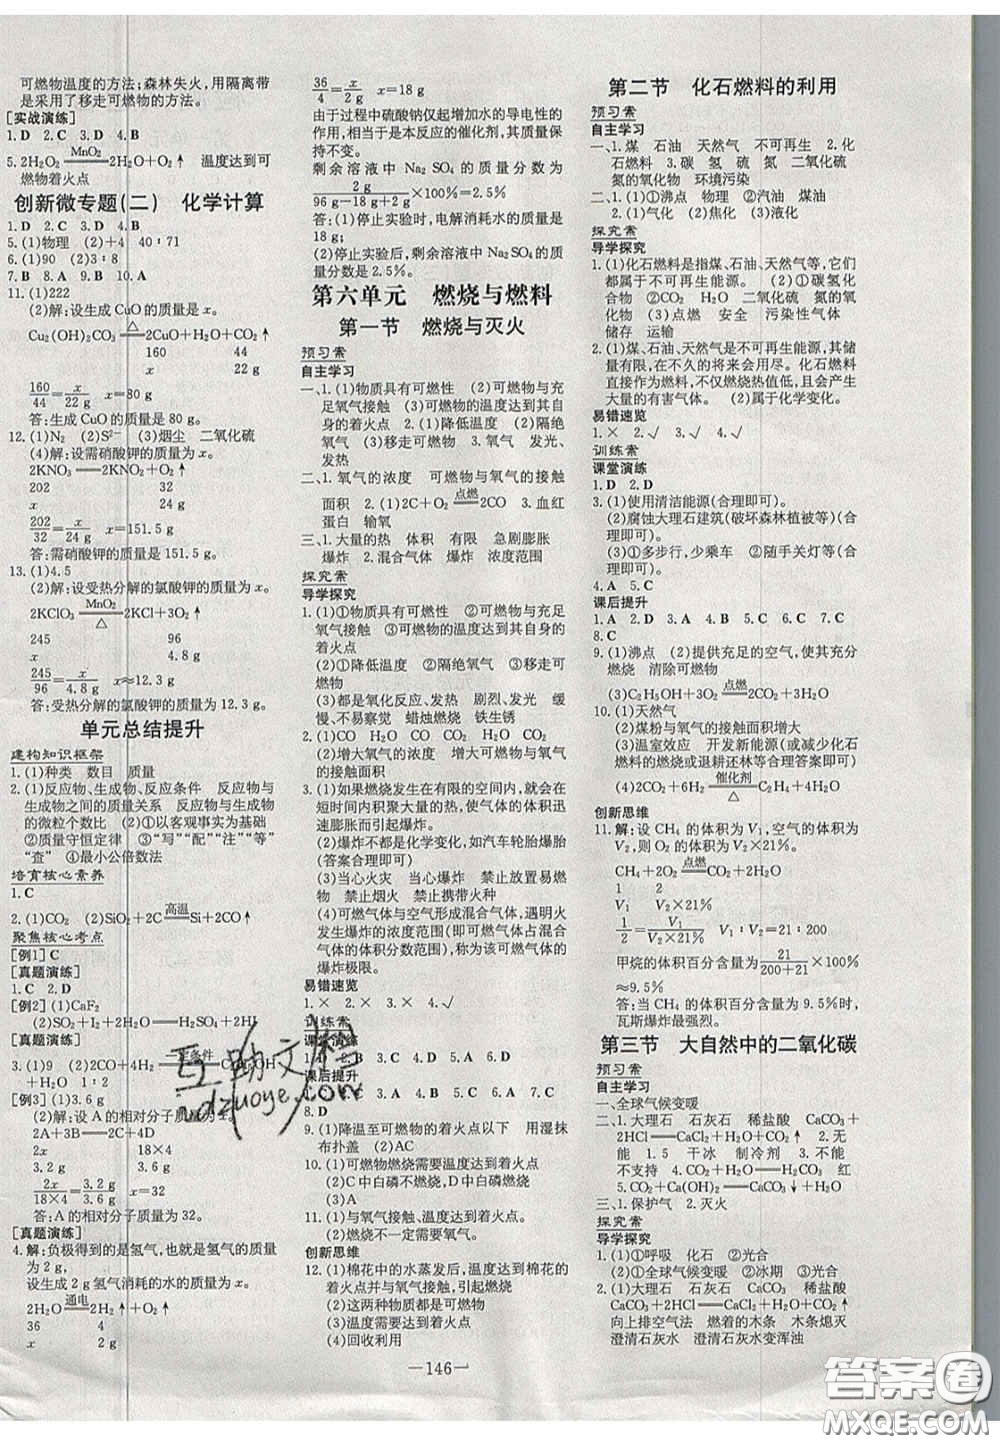 可燃物温度的方法;森林失火,用隔离带
是采用了移走可燃物的方法。
[实战演练]
1.D 2.C 3.D 4.B
5.2H₂O₂ =MnO₂= 2H₂O+O₂↑ 温度达到可
燃物着火点
创新微专题(二) 化学计算
1.D 2.C 3.D 4.B
5.(1)物理 (2)+4 40:71
6.(1)90 (2)3:8
7.B 8.A 9.B 10.A
11.(1)222
(2)解:设生成CuO的质量是x。
Cu₂(OH)₂CO₃ =△= 2CuO+H₂O+CO₂↑
160 44
x 22 g
160/44=x/22 g x=80 g
答:生成CuO的质量是80 g。
12.(1)N₂ (2)S²⁻ (3)烟尘 二氧化硫
(4)解:设需硝酸钾的质量为x。
2KNO₃=2KNO₂+O₂↑
202 32
x 24 g
202/32=x/24 g x=151.5 g
答:需硝酸钾的质量为151.5 g。
13.(1)4.5
(2)解:设受热分解的氯酸钾的质量为x。
2KClO₃ =MnO₂/△= 2KCl+3O₂↑
245 96
x 4.8 g
245/96=x/4.8 g x≈12.3 g
答:受热分解的氯酸钾的质量为12.3 g。
单元总结提升
建构知识框架
1.(1)种类 数目 质量
2.(1)反应物、生成物、反应条件 反应物与
生成物之间的质量关系 反应物与生成物
的微粒个数比 (2)①以客观事实为基础
②质量守恒定律 ③"写""配""注""等"
"查" ④最小公倍数法
培育核心素养
1.C
2.(1)CO₂ (2)SiO₂+2C =高温= Si+2CO↑
聚焦核心考点
[例1]C
[真题演练]
1.C 2.D
[例2](1)CaF₂
(2)SO₂+I₂+2H₂O=H₂SO₄+2HI
[真题演练]
3.(1)90 (2)2CO+4H₂ =一定条件= C₂H₅OH
+H₂O 1:2
[例3](1)3.6 g
(2)解:设A的相对分子质量为x。
2A+3B=2C+4D
2x 18×4
3.2 g 3.6 g
2x/18×4=3.2 g/3.6 g x=32
答:A的相对分子质量为32。
[真题演练]
4.解:负极得到的是氢气,也就是氢气的质量
为2 g,
设生成2 g氢气消耗的水的质量为x。
2H₂O =通电= 2H₂↑+O₂↑
36 4
x 2 g
36/4=x/2 g x=18 g
由于过程中硫酸钠仅起增加水的导电性的
作用,相当于是本反应的催化剂,其质量
保持不变。
剩余溶液中Na₂SO₄的质量分数为
2 g/96 g-18 g+2 g×100%=2.5%
答:(1)停止实验时,电解消耗水的质量是
18 g;
(2)停止实验后,剩余溶液中Na₂SO₄的质
量分数是2.5%。
第六单元 燃烧与燃料
第一节 燃烧与灭火
预习索
自主学习
一、1.(1)物质具有可燃性 (2)可燃物与充
足氧气接触 (3)可燃物的温度达到其自
身的着火点 2.(1)降低温度 (2)隔绝
氧气 (3)移走可燃物 3.氧气 发光、
发热
二、1.氧气的浓度 可燃物与氧气的接触
面积 2.(1)2C+O₂ =点燃= 2CO 3.血红
蛋白 输氧
三、1.大量的热 体积 有限 急剧膨胀
爆炸 2.混合气体 爆炸 浓度范围
探究索
导学探究
1.(1)①物质具有可燃性 ②可燃物与充足
氧气接触 ③可燃物的温度达到其自身的
着火点
(2)①降低温度 ②隔绝氧气 ③移走可
燃物
(3)都是氧化反应、发热 剧烈、发光 缓
慢、不易察觉 蜡烛燃烧 铁生锈
2.(1)CO₂ H₂O CO H₂O CO₂ CO
(2)增大氧气的浓度 增大可燃物与氧气
的接触面积
3.(1)如果燃烧发生在有限的空间内,就会在
短时间内积聚大量的热,使气体的体积迅
速膨胀而引起爆炸。
(2)爆炸不都是化学变化,如汽车轮胎爆胎
(答案合理即可)
(3)当心火灾 当心爆炸 禁止放置易燃
物 禁止烟火 禁止携带火种
(4)可燃气体与空气形成混合气体,遇明火
发生爆炸的浓度范围(即可燃气体占混合
气体的体积分数范围),称为该可燃气体的
爆炸极限。
易错速览
1.× 2.× 3.× 4.√
训练索
课堂演练
1.B 2.A 3.B 4.C 5.A 6.D 7.D
课后提升
1.C
8.D
9.(1)降温至可燃物的着火点以下 用湿抹
布扑盖 (2)AC
10.(1)可燃物燃烧需要温度达到着火点
(2)C中白磷不燃烧、D中白磷燃烧
(3)A
11.(1)与氧气接触、温度达到着火点。
(2)燃烧不一定需要氧气。
创新思维
12.(1)棉花中的水蒸发后,温度达到棉花的
着火点并与氧气接触,引起燃烧
(2)这两种物质都是可燃物
(3)温度需要达到着火点
(4)回收利用
第二节 化石燃料的利用
预习索
自主学习
一、1.煤 石油 天然气 不可再生 2.化
石燃料 3.碳 氢 硫 氮 二氧化硫
氮的氧化物 环境污染
二、1.(1)①沸点 物理 ②汽油 煤油
2.(1)气化 (2)焦化 (3)液化
探究索
导学探究
1.(1)化石燃料是指煤、石油、天然气等,它们
都属于不可再生能源。 (2)①碳氢化
合物 ②CO₂ H₂O 二氧化硫、氮的氧化
物 (3)点燃 安全 污染性气体
储存 运输
2.(1)煤、石油、天然气是不可再生能源,其储
量有限,在不久的将来会用尽。 化石燃料
直接作为燃料不仅燃烧热值低,且会产生
大量的有害气体。 (2)属于化学变化。
易错速览
1.× 2.√ 3.√ 4.√
训练索
课堂演练
1.D 2.D
3.(1)使用清洁能源(合理即可)。
(2)腐蚀大理石建筑(破坏森林植被等)(合
理即可)。
(3)①多步行,少乘车 ②随手关灯等(合
理即可)。
4.A 5.C
课后提升
1.A 2.D 3.A 4.A 5.D 6.B 7.C
8.C
9.(1)沸点 (2)提供充足的空气,使其充分
燃烧 清除可燃物
(3)C₂H₅OH+3O₂ =点燃= 2CO₂+3H₂O
10.(1)天然气
(2)煤粉与氧气的接触面积增大
(3)温室效应 开发新能源(或减少化石
燃料的燃烧或退耕还林等合理答案即可)
(4)2CO₂+6H₂ =催化剂/△= C₂H₄+4H₂O
创新思维
11.解:设CH₄的体积为V₁,空气的体积为
V₂,则O₂的体积为V₂×21%。
CH₄+2O₂ =点燃= CO₂+2H₂O
1 2
V₁ V₂×21%
1/2=V₁/V₂×21% V₁:V₂=21:200
甲烷的体积百分含量为 21/200+21×100%
≈9.5%
答:当CH₄的体积百分含量为9.5%时,
瓦斯爆炸最强烈。
第三节 大自然中的二氧化碳
预习索
自主学习
一、全球气候变暖
二、1.大理石 石灰石 稀盐酸 CaCO₃+
2HCl=CaCl₂+H₂O+CO₂↑ 2.无
能 1.5 干冰 制冷剂 3.不能
不支持 4.CO₂+H₂O=H₂CO₃ 红
5.CO₂+Ca(OH)₂=CaCO₃↓+H₂O
三、1.保护气 2.灭火
探究索
导学探究
1.(1)①呼吸 化石 ②光合
(2)①全球气候变暖 ②冰期 ③光合
2.(1)大理石 石灰石 稀盐酸
CaCO₃+2HCl=CaCl₂+H₂O+CO₂↑
向上排空气法 燃着的木条 木条熄灭
澄清石灰水 澄清石灰水变浑浊
—146—
互助文档
hdzuoye.com
答案圈
MXQE.COM